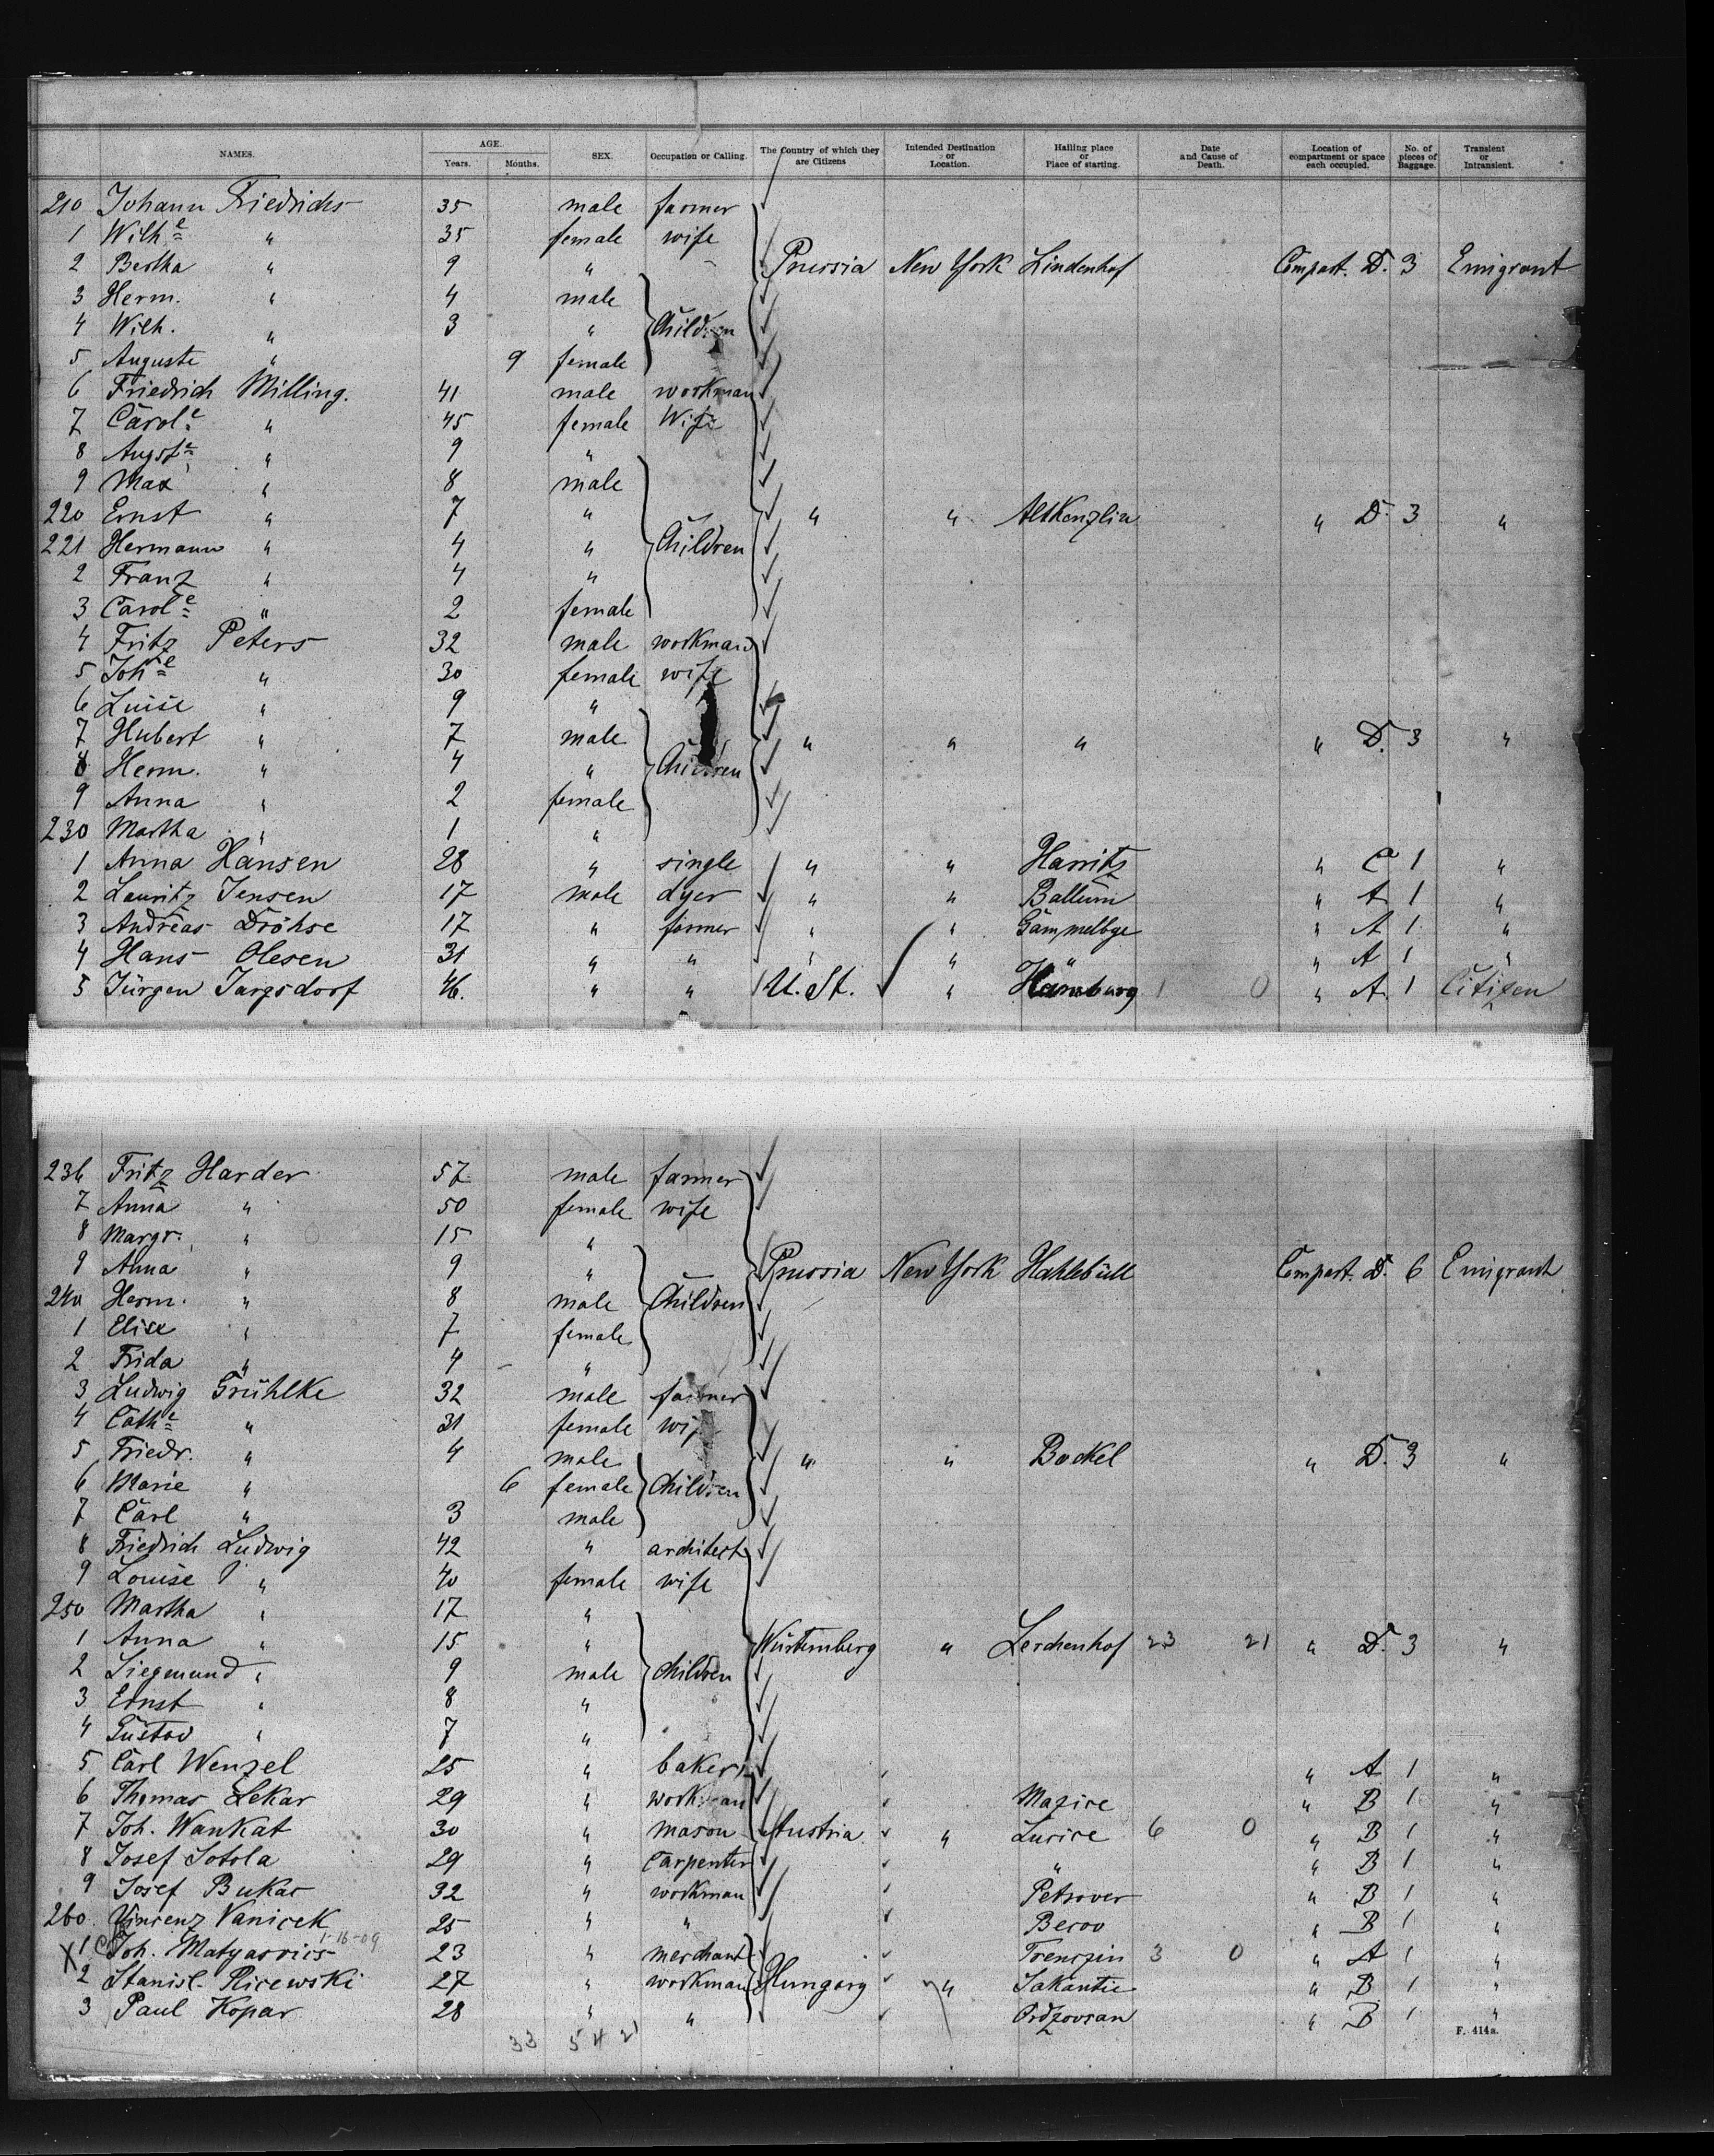 NAMES. AGE. Years. Months. SEX. Occupation or Calling. The Country of which they are Citizens Intended Destination or Location. Hailing place or Place of starting. Date and Cause of Death. Location of compartment or space each occupied. No. of pieces of Baggage. Transient or Intransient.
210 Johann Friedrichs 35 male farmer
1 Wilhe " 35 female wife
2 Bertha " 9 " Prussia New York Lindenhof Compart. D. 3 Emigrant
3 Herm. " 4 male
4 Wilh. " 3 " Children
5 Auguste " 9 female
6 Friedrich Milling. 41 male workman
7 Carole " 45 female Wife
8 Augste " 9 "
9 Max " 8 male
220 Ernst " 7 " " " Altkenzlin " D. 3 "
221 Hermann " 4 " Children
2 Franz " 4 "
3 Carole " 2 female
4 Fritz Peters 32 male workman
5 Johe " 30 female wife
6 Luise " 9 "
7 Hubert " 7 male " " " " D. 3 "
8 Herm. " 4 " Children
9 Anna " 2 female
230 Martha " 1 "
1 Anna Hansen 28 " single " " Harritz " C 1 "
2 Lauritz Jensen 17 male dyer " " Ballum " A 1 "
3 Andreas Dröhse 17 " farmer " " Gammelbye " A 1 "
4 Hans Olesen 31 " " " " " " A 1 "
5 Jürgen Jargsdorf 46. " " U. St. " Hamburg 1 0 " A 1 Citizen
236 Fritz Harder 57 male farmer
7 Anna " 50 female wife
8 Margr. " 15 "
9 Anna " 9 " Prussia New York Hahlebüll Compart. D. 6 Emigrant
240 Herm. " 8 male Children
1 Elise " 7 female
2 Frida " 4 - "
3 Ludwig Grühlke 32 male farmer
4 Cathe " 31 female wife
5 Friedr. " 4 male " " Bockel " D. 3 "
6 Marie " 6 female Children
7 Carl " 3 male
8 Friedrich Ludwig 42 " architect
9 Louise " 40 female wife
250 Martha " 17 "
1 Anna " 15 " Würtemberg " Lerchenhof 23 21 " D. 3 "
2 Siegmund " 9 male Children
3 Ernst " 8 "
4 Gustav " 7 "
5 Carl Wenzel 25 " baker " A 1 "
6 Thomas Lekar 29 " workman Mazice " B 1 "
7 Joh. Wankat 30 " mason Austria " Lusice 6 0 " B 1 "
8 Josef Sotola 29 " Carpenter " " B 1 "
9 Josef Bukac 32 " workman Petrover " B 1 "
260 Vincenz Vanicek 25 " " Becov " B 1 "
1-16-09
X 1 Joh. Matyasovics 23 " merchant Trenczin 3 0 " A 1 "
2 Stanisl. Picewski 27 " workman Hungary " Sakantie " B 1 "
3 Paul Kopar 28 " " " B 1 "
33 54 21
F. 414a.